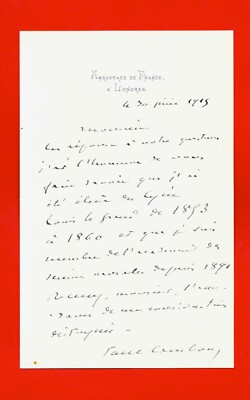 Ambassade de France,
à Londres
le 30 juin 1919
Monsieur
En réponse à votre question
j'ai l'honneur de vous
faire savoir que j'ai
été élève du lycée
Louis le grand de 1853
à 1860 et que je suis
membre de l'académie des
sciences morales depuis 189
Recevez, monsieur, l'assu-
rance de ma considération
distinguée.
Paul Cambon